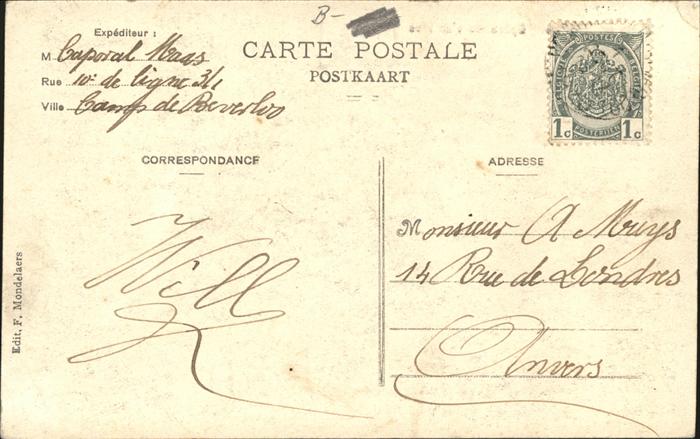 B-
Expéditeur :
M Caporal Maas
Rue 10e de ligne 3/1
Ville Camp de Beverloo
CARTE POSTALE
POSTKAART
POSTES
POSTERIJEN
1c 1c
CORRESPONDANCE
Will
Edit. F. Mondelaers
ADRESSE
Monsieur A Mruys
14 Rue de Londres
Anvers